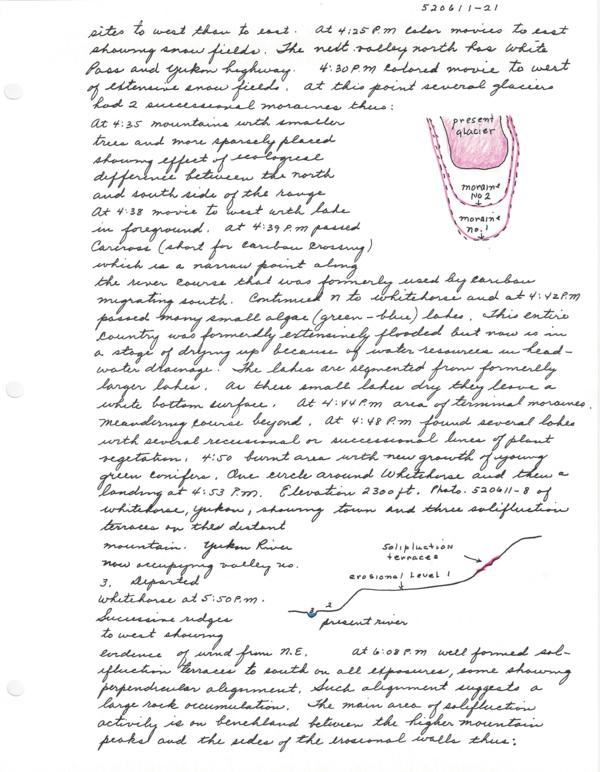 520611-21
sites to west than to east. At 4:25 P.M color movies to east
showing snow fields. The next valley north has White
Pass and Yukon highway. 4:30 P.M colored movie to west
of extensive snow fields. At this point several glaciers
had 2 successional moraines thus:
At 4:35 mountains with smaller
trees and more sparsely placed
showing effect of ecological
difference between the north
and south side of the range
At 4:38 movie to west with lake
in foreground. At 4:39 P.M passed
Carcross (short for caribou crossing)
which is a narrow point along
the river course that was formerly used by caribou
migrating south. Continued N to Whitehorse and at 4:42 P.M
passed many small algae (green-blue) lakes. This entire
country was formerdly extensively flooded but now is in
a stage of drying up because of water resources in head-
water drainage. The lakes are segmented from formerlly
larger lakes. As these small lakes dry they leave a
white bottom surface. At 4:44 P.M area of terminal moraines.
Meandering course beyond. At 4:48 P.M found several lakes
with several recessional or successional lines of plant
vegetation. 4:50 burnt area with new growth of young
green conifers. One circle around Whitehorse and then a
landing at 4:53 P.M. Elevation 2300 ft. Photo. 520611-8 of
Whitehorse, Yukon, showing town and three solifluction
terraces on the distant
mountain. Yukon River
now occupying valley no.
3. Departed
Whitehorse at 5:50 P.M.
Successive ridges
to west showing
evidence of wind from N.E. At 6:08 P.M well formed sol-
ifluction terraces to south on all exposures, some showing
perpendicular alignment. Such alignment suggests a
large rock accumulation. The main area of solifluction
activity is on benchland between the higher mountain
peaks and the sides of the erosional walls thus:
present
glacier
moraine
No 2
moraine
no. 1
solifluction
terraces
erosional level 1
2
3
present river